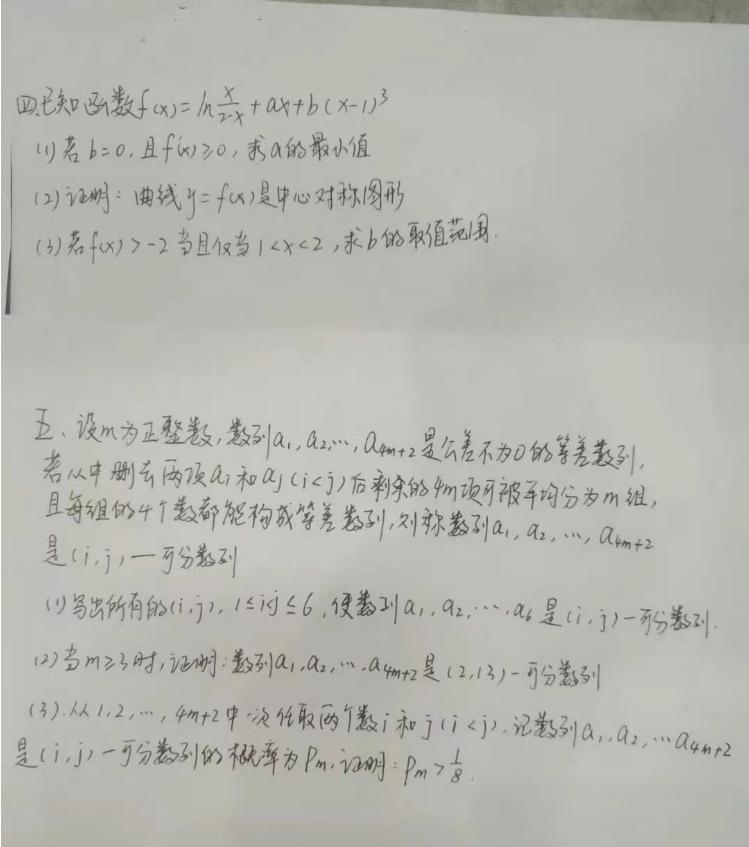 四.已知函数f(x)=ln x/(2-x)+ax+b(x-1)³
(1)若b=0,且f'(x)≥0,求a的最小值
(2)证明:曲线y=f(x)是中心对称图形
(3)若f(x)>-2当且仅当1<x<2,求b的取值范围.
五、设m为正整数,数列a₁,a₂,…,a₄ₘ₊₂是公差不为0的等差数列,
若从中删去两项aᵢ和aⱼ(i<j)后剩余的4m项可被平均分为m组,
且每组的4个数都能构成等差数列,则称数列a₁,a₂,…,a₄ₘ₊₂
是(i,j)一可分数列
(1)写出所有的(i,j),1≤i<j≤6,使数列a₁,a₂,…,a₆是(i,j)一可分数列.
(2)当m≥3时,证明:数列a₁,a₂,…,a₄ₘ₊₂是(2,13)一可分数列
(3).从1,2,…,4m+2中一次任取两个数i和j(i<j),记数列a₁,a₂,…a₄ₘ₊₂
是(i,j)一可分数列的概率为Pₘ,证明:Pₘ>1/8.